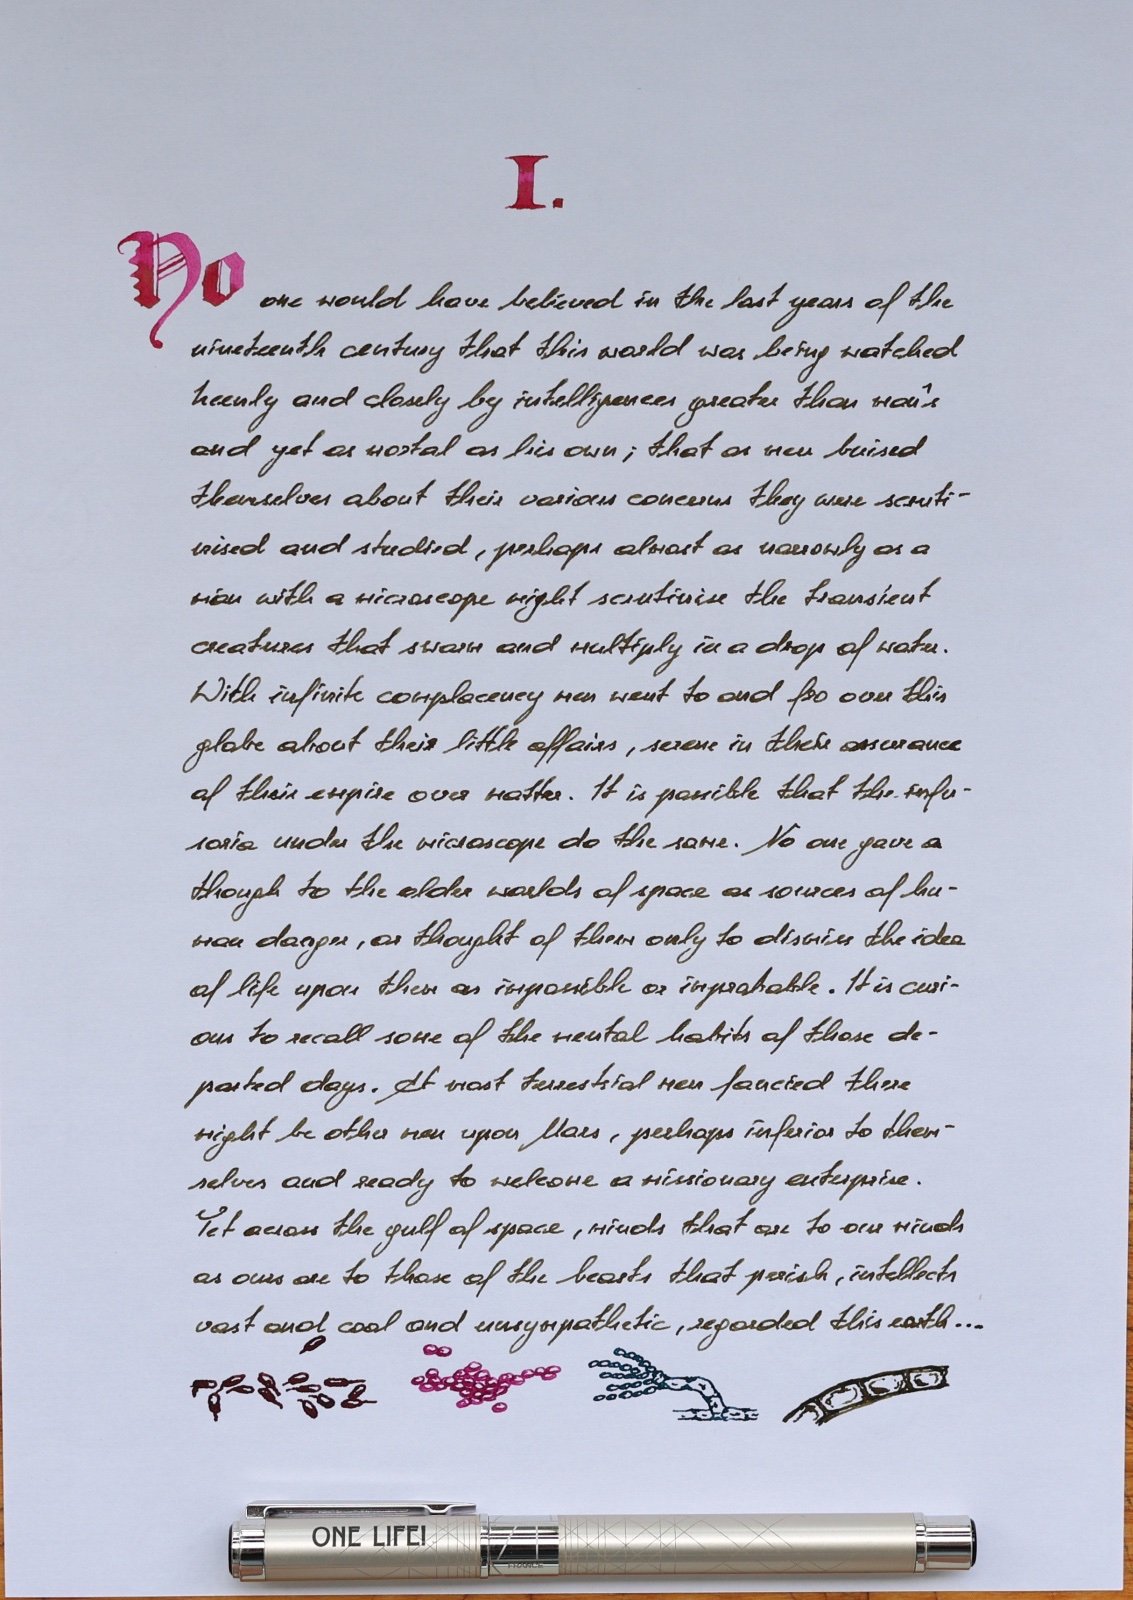 I.
No one would have believed in the last years of the
nineteenth century that this world was being watched
keenly and closely by intelligences greater than man's
and yet as mortal as his own; that as men buised
themselves about their various concerns they were scruti-
nised and studied, perhaps almost as narrowly as a
man with a microscope might scrutinise the transient
creatures that swarm and multiply in a drop of water.
With infinite complacency men went to and fro over this
globe about their little affairs, serene in their assurance
of their empire over matter. It is possible that the infu-
soria under the microscope do the same. No one gave a
though to the older worlds of space as sources of hu-
man danger, or thought of them only to dismiss the idea
of life upon them as impossible or improbable. It is curi-
ous to recall some of the mental habits of those de-
parted days. At most terrestrial men fancied there
might be other men upon Mars, perhaps inferior to them-
selves and ready to welcome a missionary enterprise.
Yet across the gulf of space, minds that are to our minds
as ours are to those of the beasts that perish, intellects
vast and cool and unsympathetic, regarded this earth...
ONE LIFE!